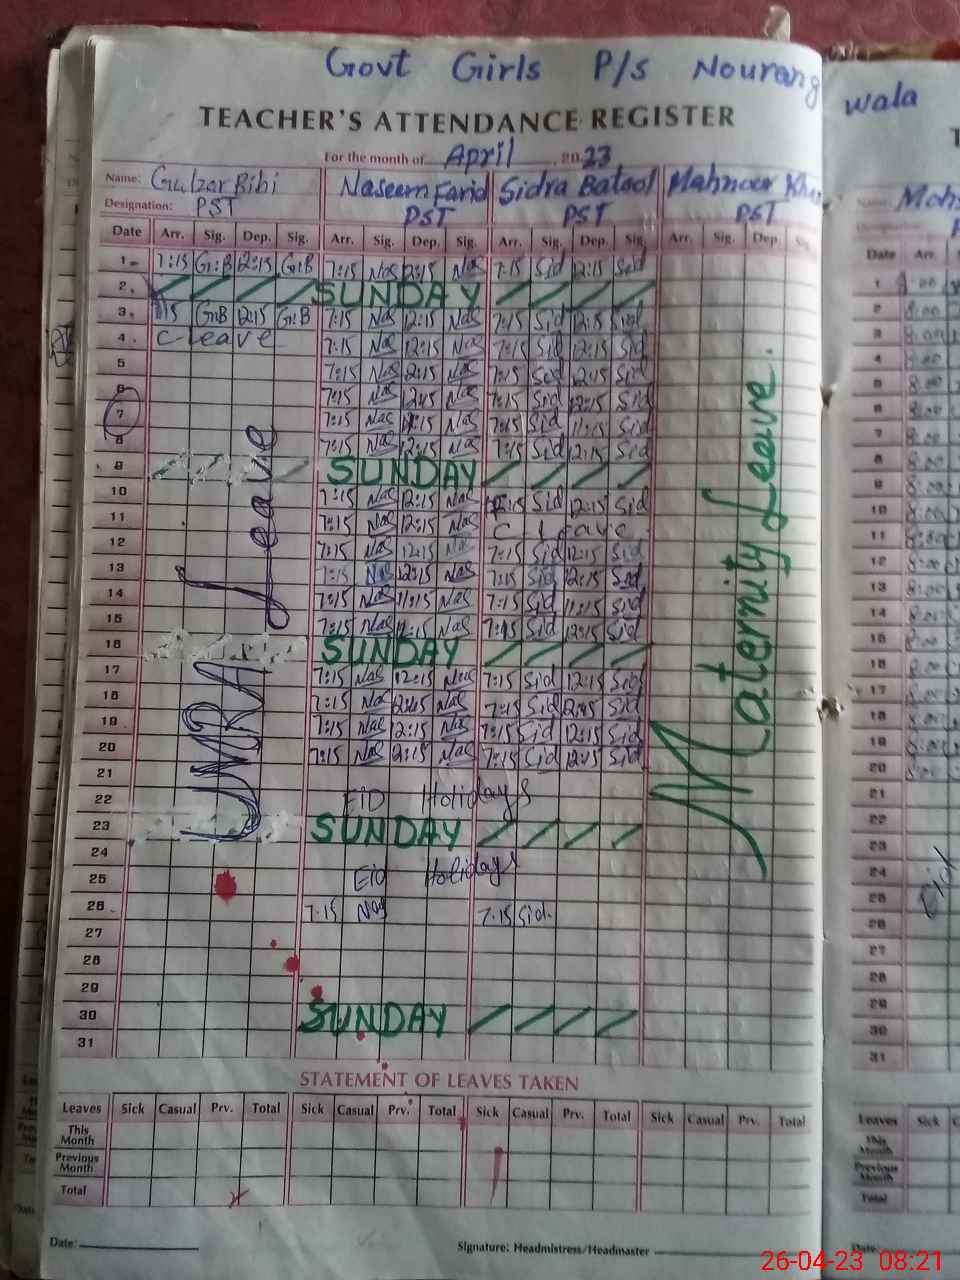 Govt Girls P/s Nourang wala
TEACHER'S ATTENDANCE REGISTER
For the month of April, 2023
Name: Gulzar Bibi Naseem Farid Sidra Batool Mahnoor
Designation: PST PST PST PST
Date Arr. Sig. Dep. Sig. Arr. Sig. Dep. Sig. Arr. Sig. Dep. Sig. Arr. Sig. Dep.
1 7:15 G:B 12:15 G:B 7:15 Nas 12:15 Nas 7:15 Sid 12:15 Sid
2 SUNDAY
3 7:15 G:B 12:15 G:B 7:15 Nas 12:15 Nas 7:15 Sid 12:15 Sid
4 C-Leave 7:15 Nas 12:15 Nas 7:15 Sid 12:15 Sid
5 7:15 Nas 12:15 Nas 7:15 Sid 12:15 Sid
6 7:15 Nas 12:15 Nas 7:15 Sid 12:15 Sid
7 7:15 Nas 11:15 Nas 7:15 Sid 11:15 Sid
8 7:15 Nas 12:15 Nas 7:15 Sid 12:15 Sid
9 SUNDAY
10 7:15 Nas 12:15 Nas 7:15 Sid 12:15 Sid
11 7:15 Nas 12:15 Nas C Leave
12 7:15 Nas 12:15 Nas 7:15 Sid 12:15 Sid
13 7:15 Nas 12:15 Nas 7:15 Sid 12:15 Sid
14 7:15 Nas 11:15 Nas 7:15 Sid 11:15 Sid
15 7:15 Nas 12:15 Nas 7:15 Sid 12:15 Sid
16 SUNDAY
17 7:15 Nas 12:15 Nas 7:15 Sid 12:15 Sid
18 7:15 Na 12:15 Nas 7:15 Sid 12:15 Sid
19 7:15 Nas 12:15 Nas 7:15 Sid 12:15 Sid
20 7:15 Nas 12:15 Nas 7:15 Sid 12:15 Sid
21
22 EiD Holidays
23 SUNDAY
24
25 Eid Holidays
26 7:15 Nas 7:15 Sid
27
28
29
30 SUNDAY
31
UMRA Leave
Maternity Leave.
STATEMENT OF LEAVES TAKEN
Leaves Sick Casual Prv. Total Sick Casual Prv. Total Sick Casual Prv. Total Sick Casual Prv. Total
This Month
Previous Month
Total
Date: Signature: Headmistress/Headmaster
Date Arr.
1 8:00
2 8:00
3 8:00
4 8:00
5 8:00
6 8:00
7 8:00
8 8:00
9 8:00
10 8:00
11 8:00
12 8:00
13 8:00
14 8:00
15 8:00
16 8:00
17 8:00
18 8:00
19 8:00
20 8:00
21
22
23
24
25
26
27
28
29
30
31
Eid
Leaves Sick
This Month
Previous Month
Total
Date:
26-04-23 08:21